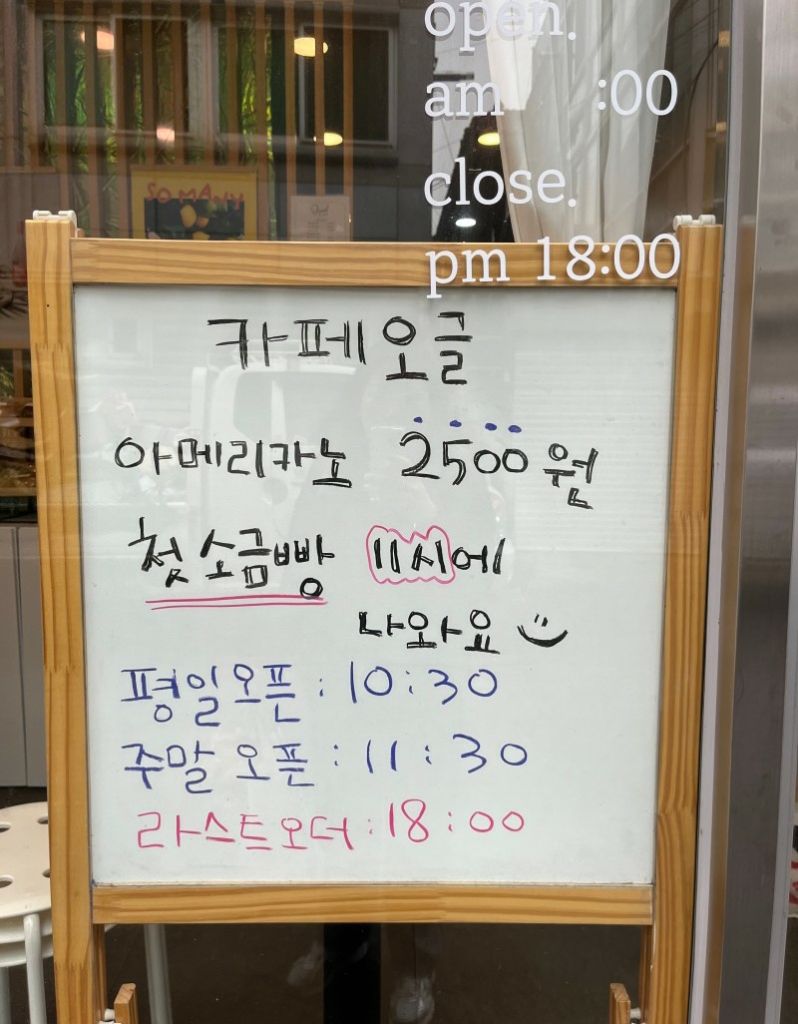 open.
am :00
close.
pm 18:00
SO MANY
카페오글
아메리카노 2500원
첫 소금빵 11시에
나와요
평일오픈 : 10:30
주말 오픈 : 11:30
라스트오더 : 18:00